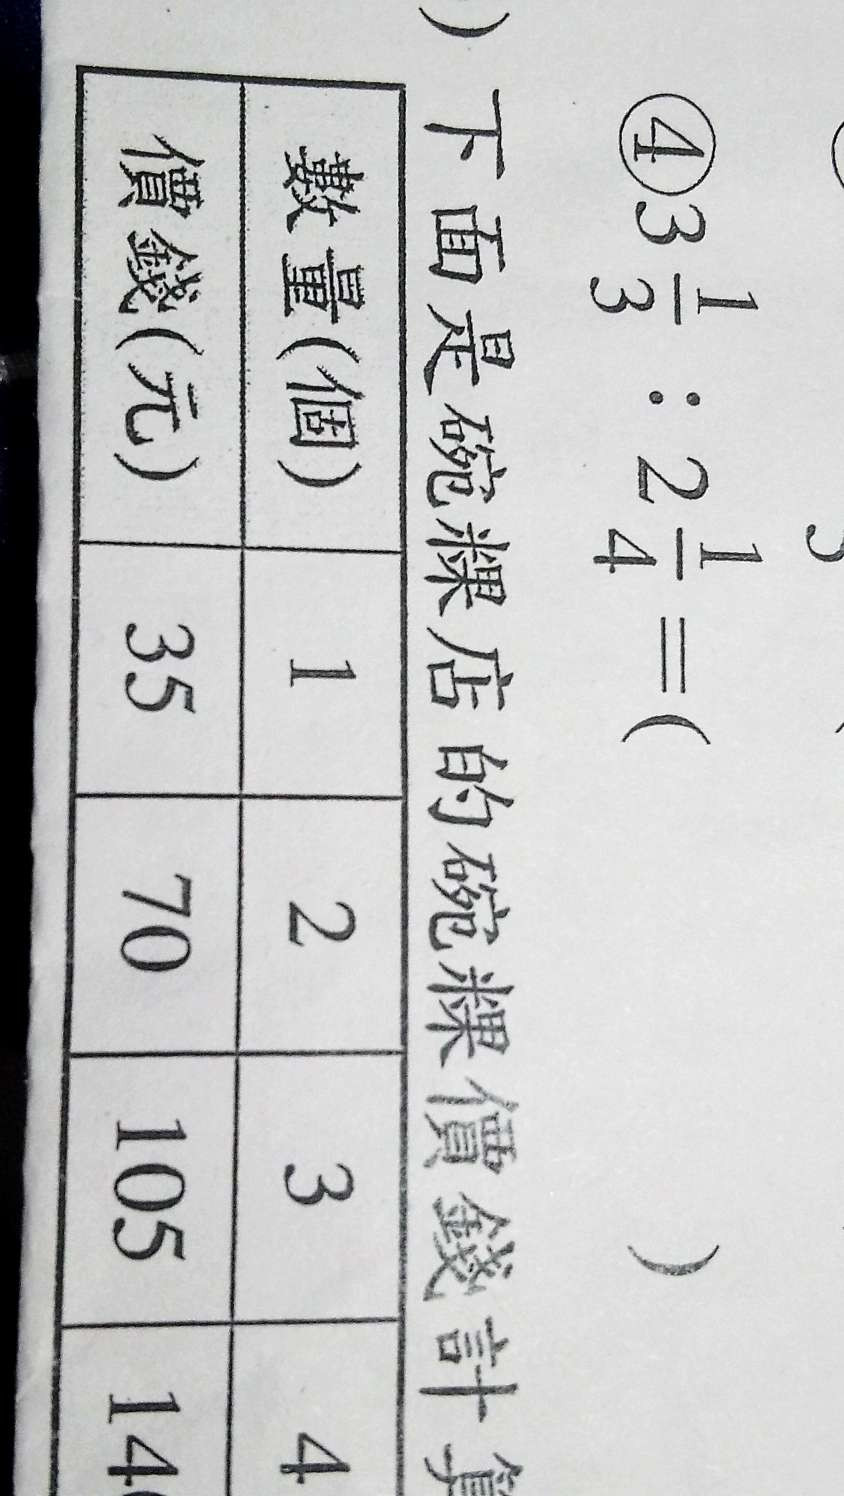 ④3 1/3：2 1/4＝(　　　)
)下面是碗粿店的碗粿價錢計算
數量(個) 1 2 3 4
價錢(元) 35 70 105